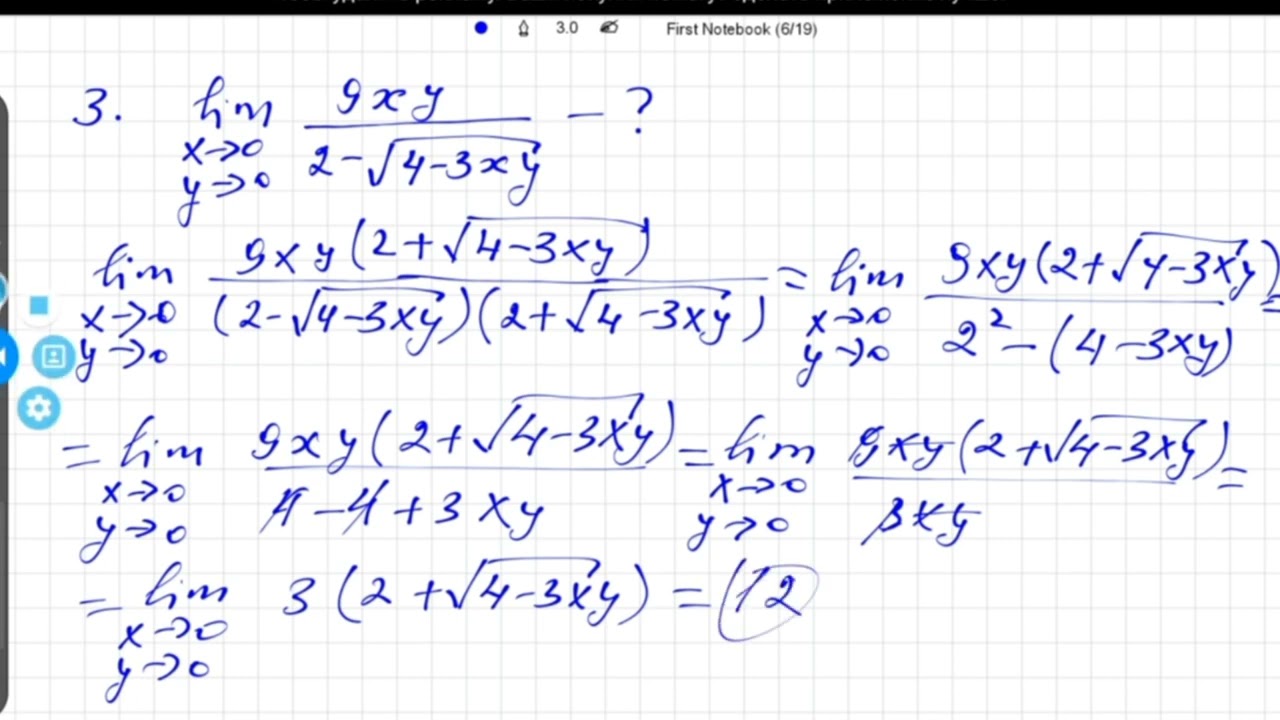 3.0 First Notebook (6/19)
3. lim x→0 y→0 9xy / (2-√(4-3xy)) - ?
lim x→0 y→0 9xy(2+√(4-3xy)) / (2-√(4-3xy))(2+√(4-3xy)) = lim x→0 y→0 9xy(2+√(4-3xy)) / 2² - (4-3xy) =
= lim x→0 y→0 9xy(2+√(4-3xy)) / 4-4+3xy = lim x→0 y→0 9xy(2+√(4-3xy)) / 3xy =
= lim x→0 y→0 3(2+√(4-3xy)) = 12